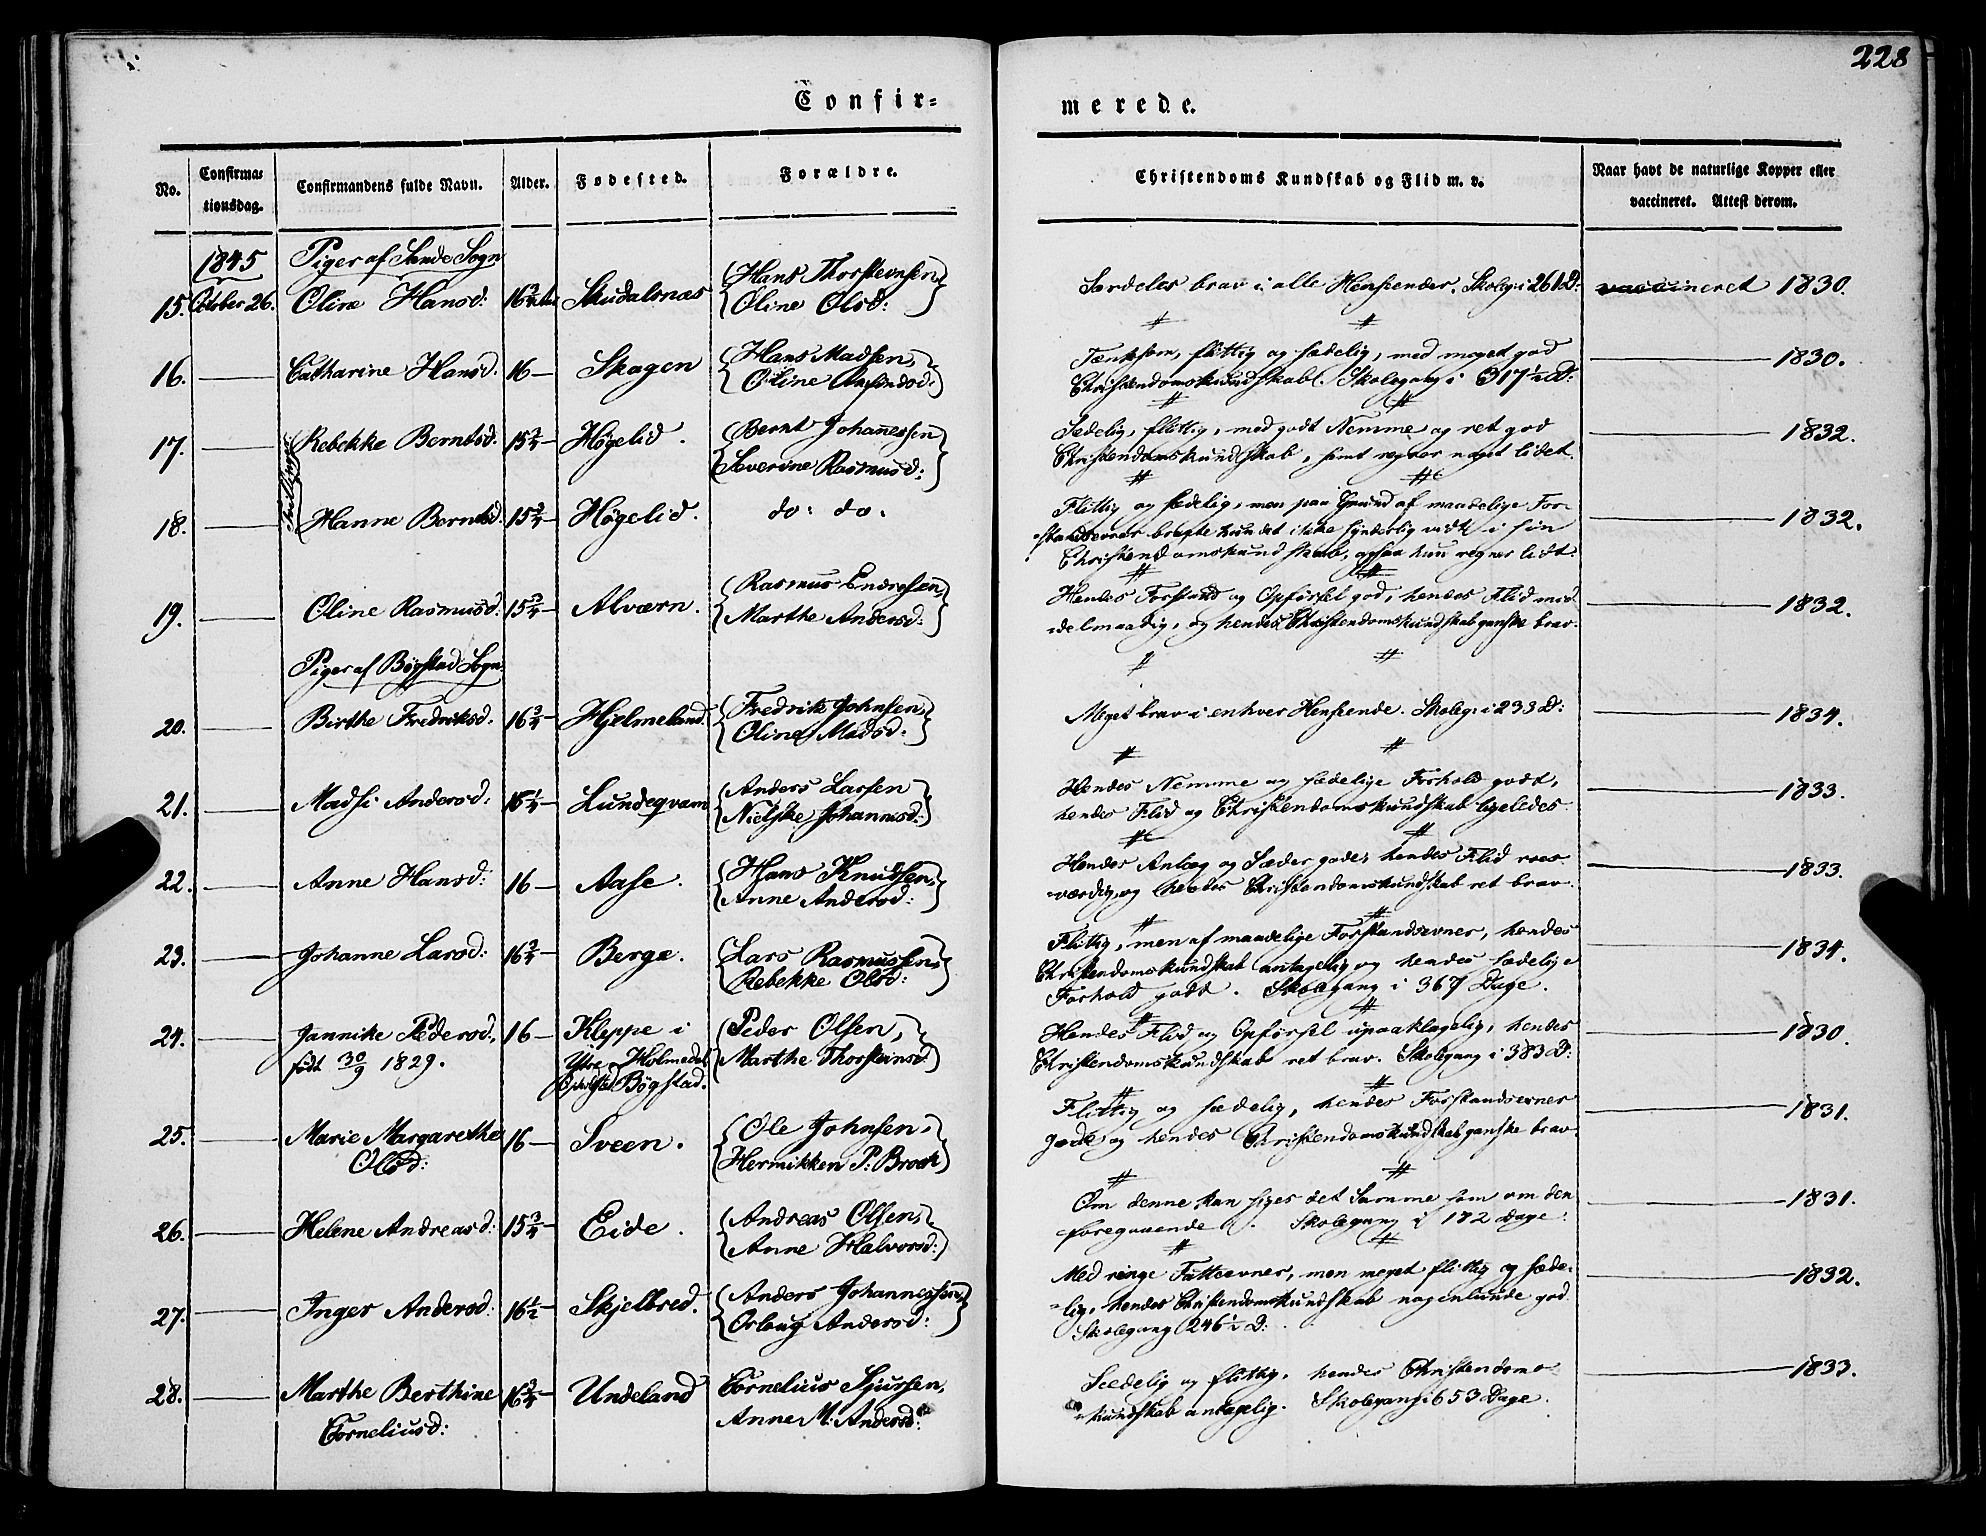 228
Confir=
merede.
No.
Confirma=
tionsdag.
Confirmandens fulde Navn.
Alder.
Fødested.
Forældre.
Christendoms Kundskab og Flid m. v.
Naar havt de naturlige Kopper eller
vaccineret. Attest derom.
1845 Piger af Sande Sogn
15. October 26. Oline Hansd: 16 3/4 Skudalsnæs Hans Thorstensen
Oline Olsd:
Særdeles brav i alle Henseender. Skoleg: i 261 D:
vaccineret 1830.
16. Catharine Hansd. 16 Skagen Hans Madsen,
Oline
Tænksom, flittig og sædelig, med meget god
Christendomskundskab. Skolegang i 317 1/2 D:
1830.
17. Tvillinger Rebekke Berntsd. 15 3/4 Høgelid. Bernt Johannessen
Severine Rasmusd:
Sædelig, flittig, med godt Nemme og ret god
Christendomskundskab, samt regner noget lidet.
1832.
18. Hanne Berntsd. 15 3/4 Høgelid. do: do.
Flittig og sædelig, men paa Grund af maadelige For-
standsevner bragte hun det ikke synderlig vidt i sin
Christendomskundskab, ogsaa hun regner lidt.
1832.
19. Oline Rasmusd. 15 3/4 Alværn. Rasmus Endresen
Marthe Andersd:
Hendes Forstand og Opførsel god, hendes Flid mid-
delmaadig, og hendes Christendomskundskab ganske brav.
1832.
Piger af Bøgstad Sogn
20. Birthe Fredriksd. 16 3/4 Hjelmeland. Fredrik Johnsen,
Oline Madsd:
Meget brav i enhver Henseende. Skoleg: i 233 D:
1834.
21. Madsi Andersd: 16 1/4 Lundeqvam Anders Larsen
Nielske Johannesd:
Hendes Nemme og sædelige Forhold godt,
hendes Flid og Christendomskundskab ligeledes
1833.
22. Anne Hansd: 16 Aase. Hans Knudsen,
Anne Andersd:
Hendes Anlæg og Sæder gode, hendes Flid roes-
værdig, og hendes Christendomskundskab ret brav.
1833.
23. Johanne Larsd: 16 3/4 Berge. Lars Rasmussen,
Rebekke Olsd:
Flittig, men af maadelige Forstandsevner, hendes
Christendomskundskab antagelig og hendes sædelige
Forhold godt. Skolegang i 367 Dage.
1834.
24. Jannike Pedersd., 16 Kleppe i Peder Olsen,
født 30/9 1829. Yttre Holmedal Marthe Thorsteinsd
Bøgstad.
Hendes Flid og Opførsel upaaklagelig, hendes
Christendomskundskab ret brav. Skolegang i 383 D:
1830.
25. Marie Margarethe 16 Sveen. Ole Johnsen,
Olsd: Hermikken P: Broch
Flittig og sædelig, hendes Forstandsevner
gode, og hendes Christendomskundskab ganske brav.
1831.
26. Helene Andreasd: 15 3/4 Eide. Andreas Olsen,
Anne Halvorsd:
Om denne kan siges det Samme som om den
foregaaende. Skolegang i 172 Dage.
1831.
27. Inger Andersd: 16 1/2 Skjelbred. Anders Johannessen,
Orloug Andersd:
Med ringe Fatteevner, men meget flittig og sæde-
lig, hendes Christendomskundskab nogenlunde god.
Skolegang 246 1/2 D:
1832.
28. Marthe Berthine 16 3/4 Undeland Cornelius Sjursen,
Corneliusd: Anne M: Andersd:
Sædelig og flittig, hendes Christendoms-
kundskab antagelig. Skolegang i 653 Dage.
1833.